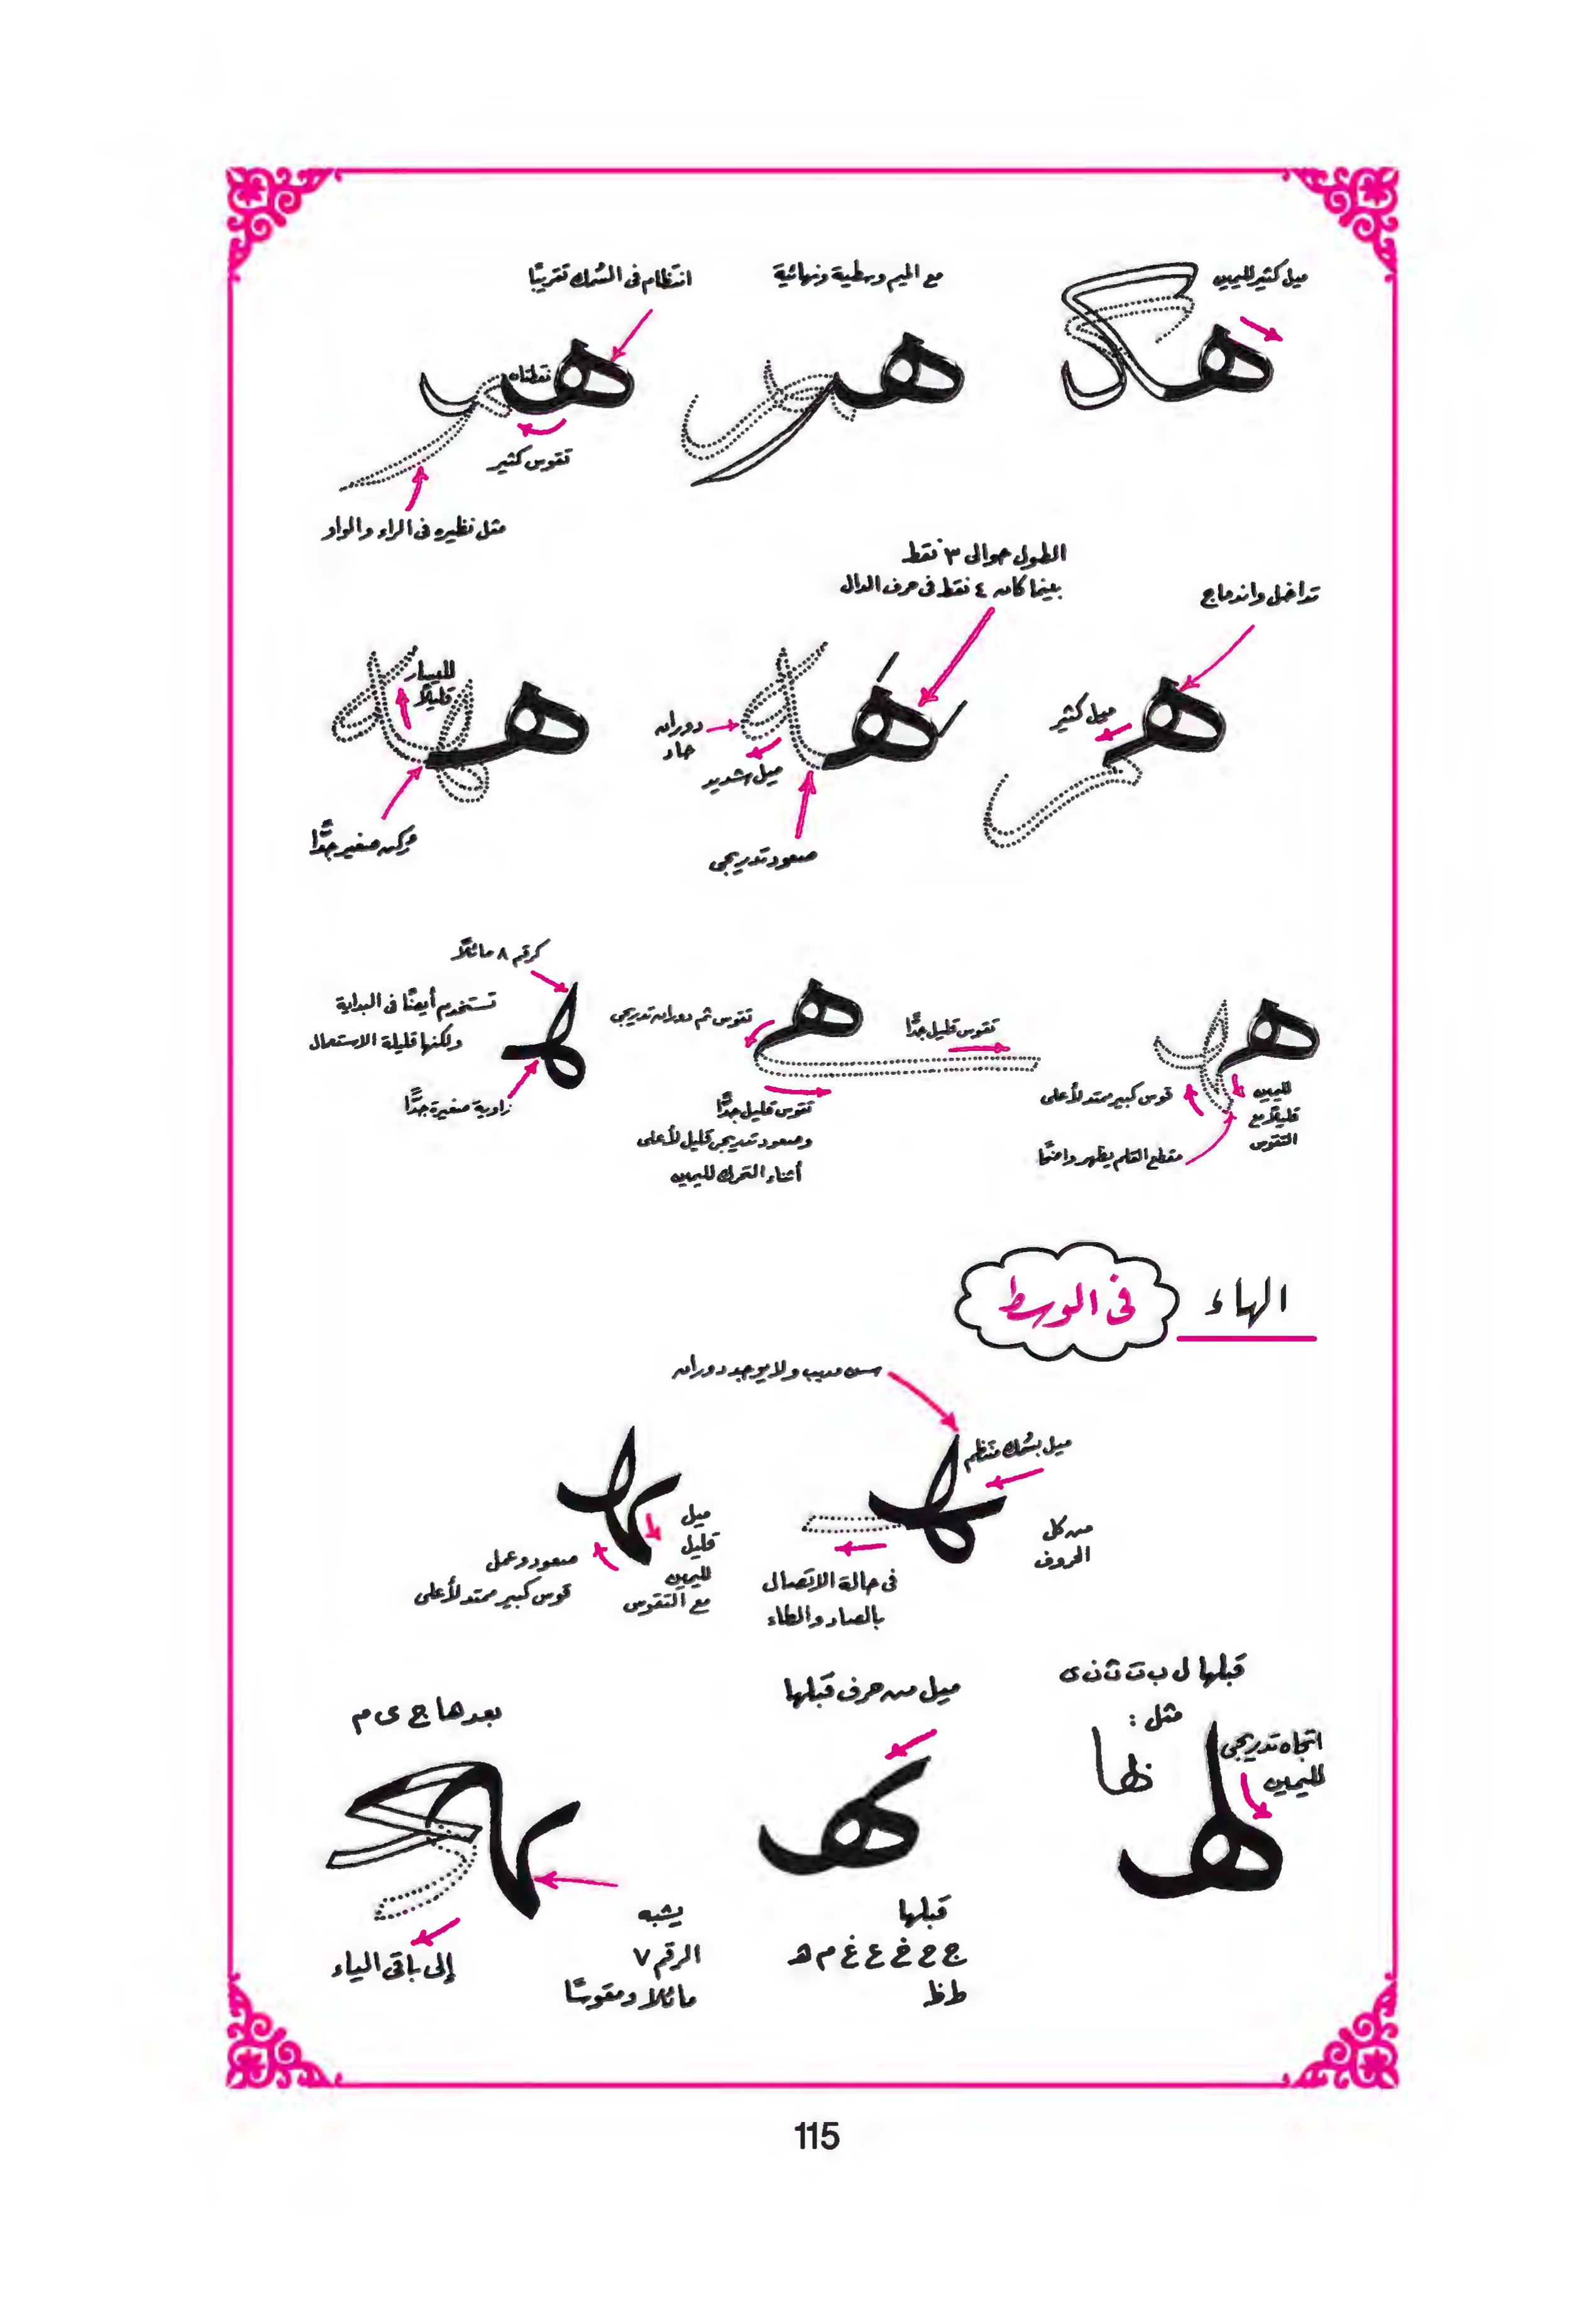 ميل كثير لليمين
مع الميم وسطية ونهائية
انتظام فى السُمك تقريبًا
نقطتان
تقوس كثير
مثل نظيره فى الراء والواو
الطول حوالى ٣ نقط
بينما كان ٤ نقط فى حرف الدال
تداخل واندماج
ميل كثير
دوران
حاد
ميل شديد
صعود تدريجى
لليسار
قليلاً
ركن صغير جدًّا
كرقم ٨ مائلاً
تستخدم أيضًا فى البداية
ولكنها قليلة الاستعمال
زاوية صغيرة جدًّا
تقوس ثم دوران تدريجى
تقوس قليل جدًّا
تقوس قليل جدًّا
وصعود تدريجى قليل لأعلى
أثناء التحرك لليمين
قوس كبير ممتد لأعلى
لليمين
قليلاً مع
التقوس
مقطع القلم يظهر واضحًا
الهاء فى الوسط
سن مدبب ولا يوجد دوران
ميل بسُمك منتظم
من كل
الحروف
فى حالة الاتصال
بالصاد والطاء
ميل
قليل
لليمين
مع التقوس
صعود وعمل
قوس كبير ممتد لأعلى
قبلها ل ب ت ث ن ى
مثل :
لها
اتجاه تدريجى
لليمين
ميل من حرف قبلها
قبلها
ج ح خ ع غ م ه
ط ظ
بعدها ج ى م
يشبه
الرقم ٧
مائلا ومقوسًا
إلى باقى الياء
115